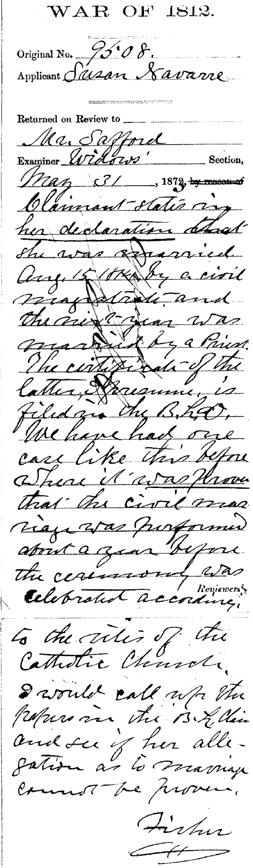 WAR OF 1812.
Original No. 9508.
Applicant Susan Navarre
Returned on Review to
Mr. Safford
Examiner Widows' Section,
May 31, 1879, by reason of
Claimant states in
her declaration that
she was married
Aug. 15 by a civil
magistrate and
the next year was
married by a Priest.
The certificate of the
latter, I presume, is
filed in the B.L.W.
We have had one
case like this before
where it was proven
that the civil mar
riage was performed
about a year before
the ceremony was
Reviewer.
celebrated according,
to the rites of the
Catholic Church.
I would call up the
papers in the B.L. Claim
and see if her alle-
gation as to marriage
cannot be proven.
Fisher